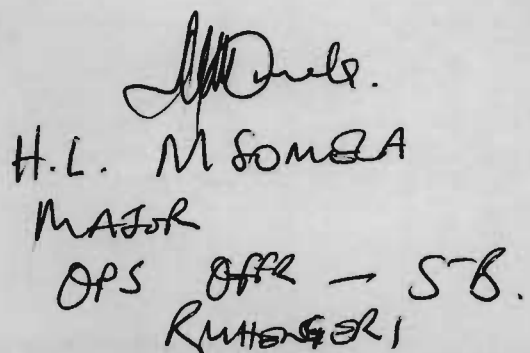 H.L. MSOMELA
MAJOR
OPS OFFR - S-B.
RUHENGERI